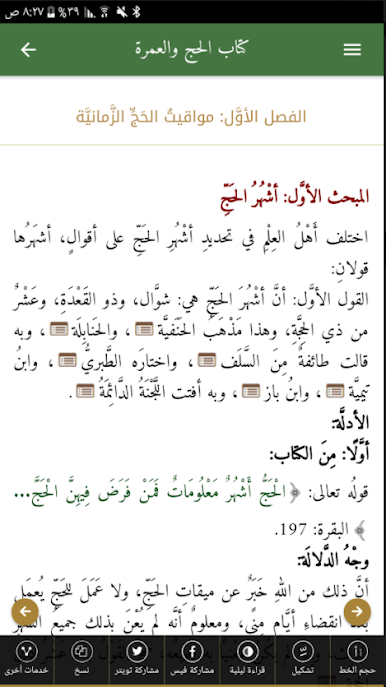 ٨:٢٧ ص ٣٩%
كتاب الحج والعمرة
الفصل الأوَّل: مواقيتُ الحَجِّ الزَّمانيَّة
المبحث الأوَّل: أشْهُرُ الحَجِّ
اختلف أَهْلُ العِلْمِ في تحديدِ أشْهُرِ الحَجِّ على أقوالٍ، أشهَرُها
قولانِ:
القول الأوَّل: أنَّ أشْهُرَ الحَجِّ هي: شوَّال، وذو القَعْدَةِ، وعَشْرٌ
من ذي الحِجَّةِ، وهذا مَذْهَبُ الحَنَفيَّة ، والحَنابِلَة ، وبه
قالت طائفةٌ مِنَ السَّلَف ، واختارَه الطَّبَريُّ ، وابنُ
تيميَّة ، وابنُ باز ، وبه أفتت اللَّجْنَةُ الدَّائِمَةُ .
الأدلَّة:
أوَّلًا: مِنَ الكتاب:
قولُه تعالى: ﴿ الْحَجُّ أَشْهُرٌ مَعْلُومَاتٌ فَمَنْ فَرَضَ فِيهِنَّ الْحَجَّ...
﴾ البقرة: 197.
وجْهُ الدَّلالةِ:
أنَّ ذلك من اللهِ خَبَرٌ عن ميقاتِ الحَجِّ، ولا عَمَلَ للحَجِّ يُعمَل
بعد انقضاءِ أيَّامِ مِنًى، ومعلومٌ أنَّه لم يُعْنَ بذلك جميعُ الشهر
حجم الخط
تشكيل
قراءة ليلية
مشاركة فيس
مشاركة تويتر
نسخ
خدمات أخرى